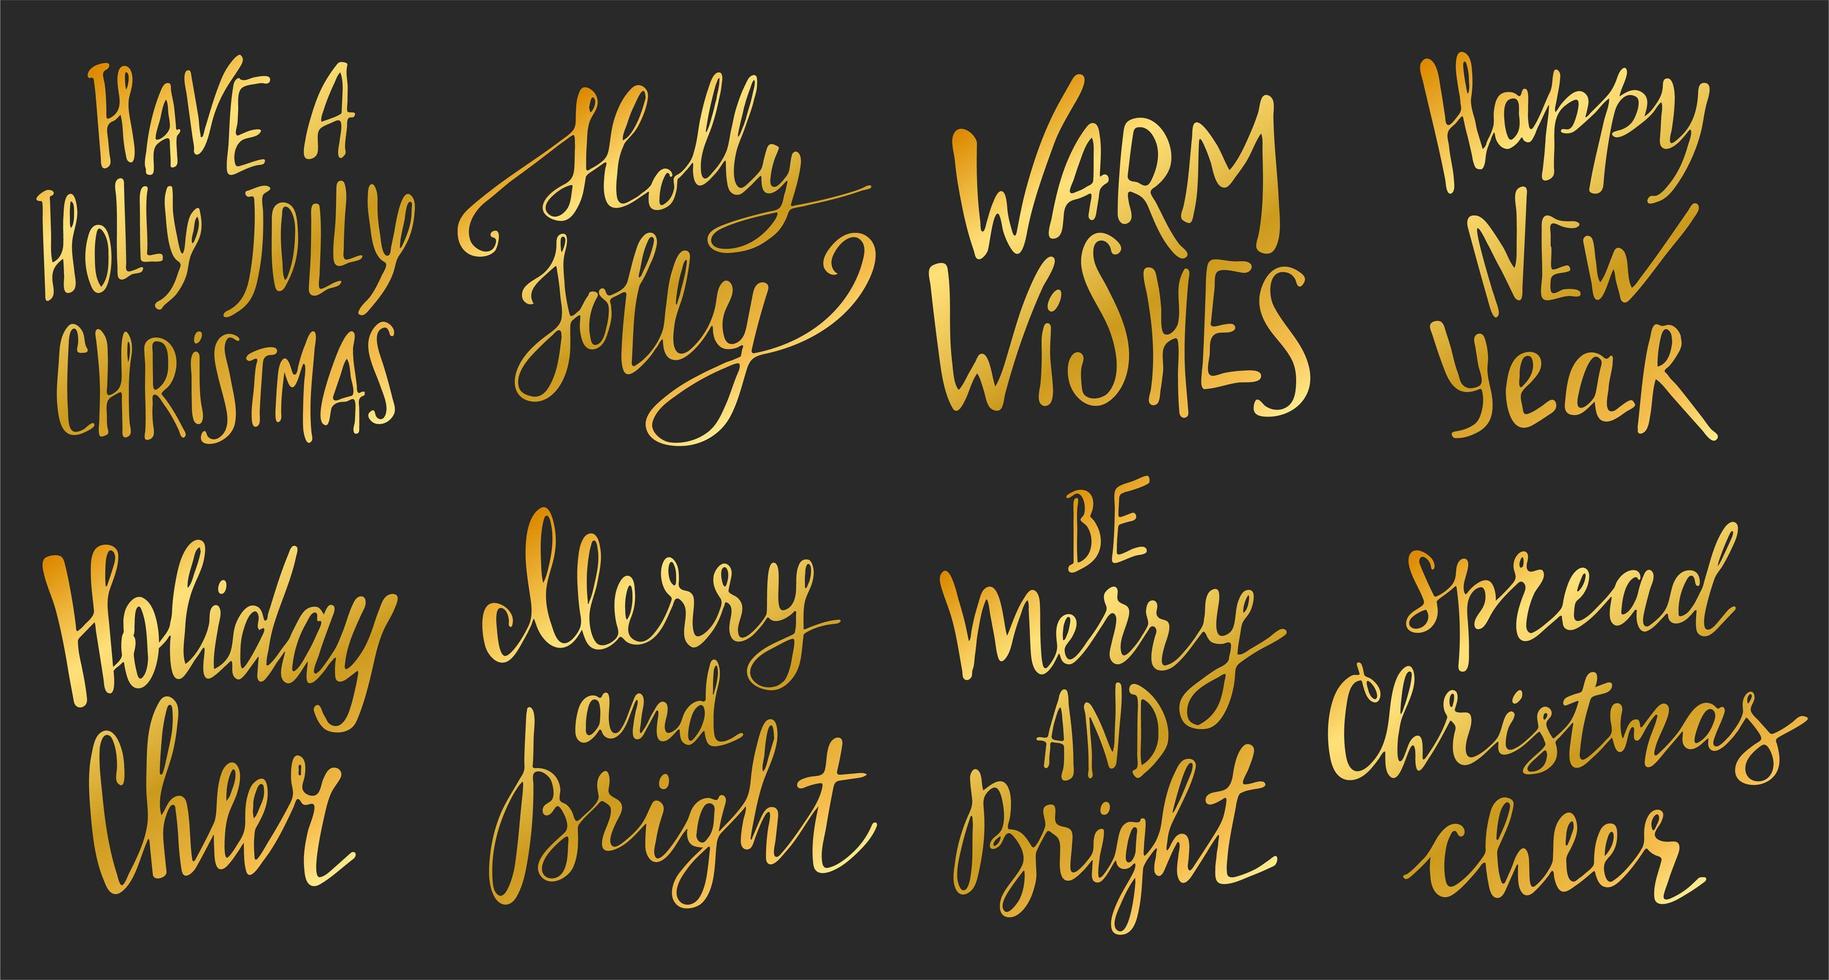 HAVE A
HOLLY JOLLY
CHRISTMAS
Holly
Jolly
WARM
WiSHES
Happy
NEW
YeaR
Holiday
Cheer
Merry
and
Bright
BE
Merry
AND
Bright
Spread
Christmas
cheer